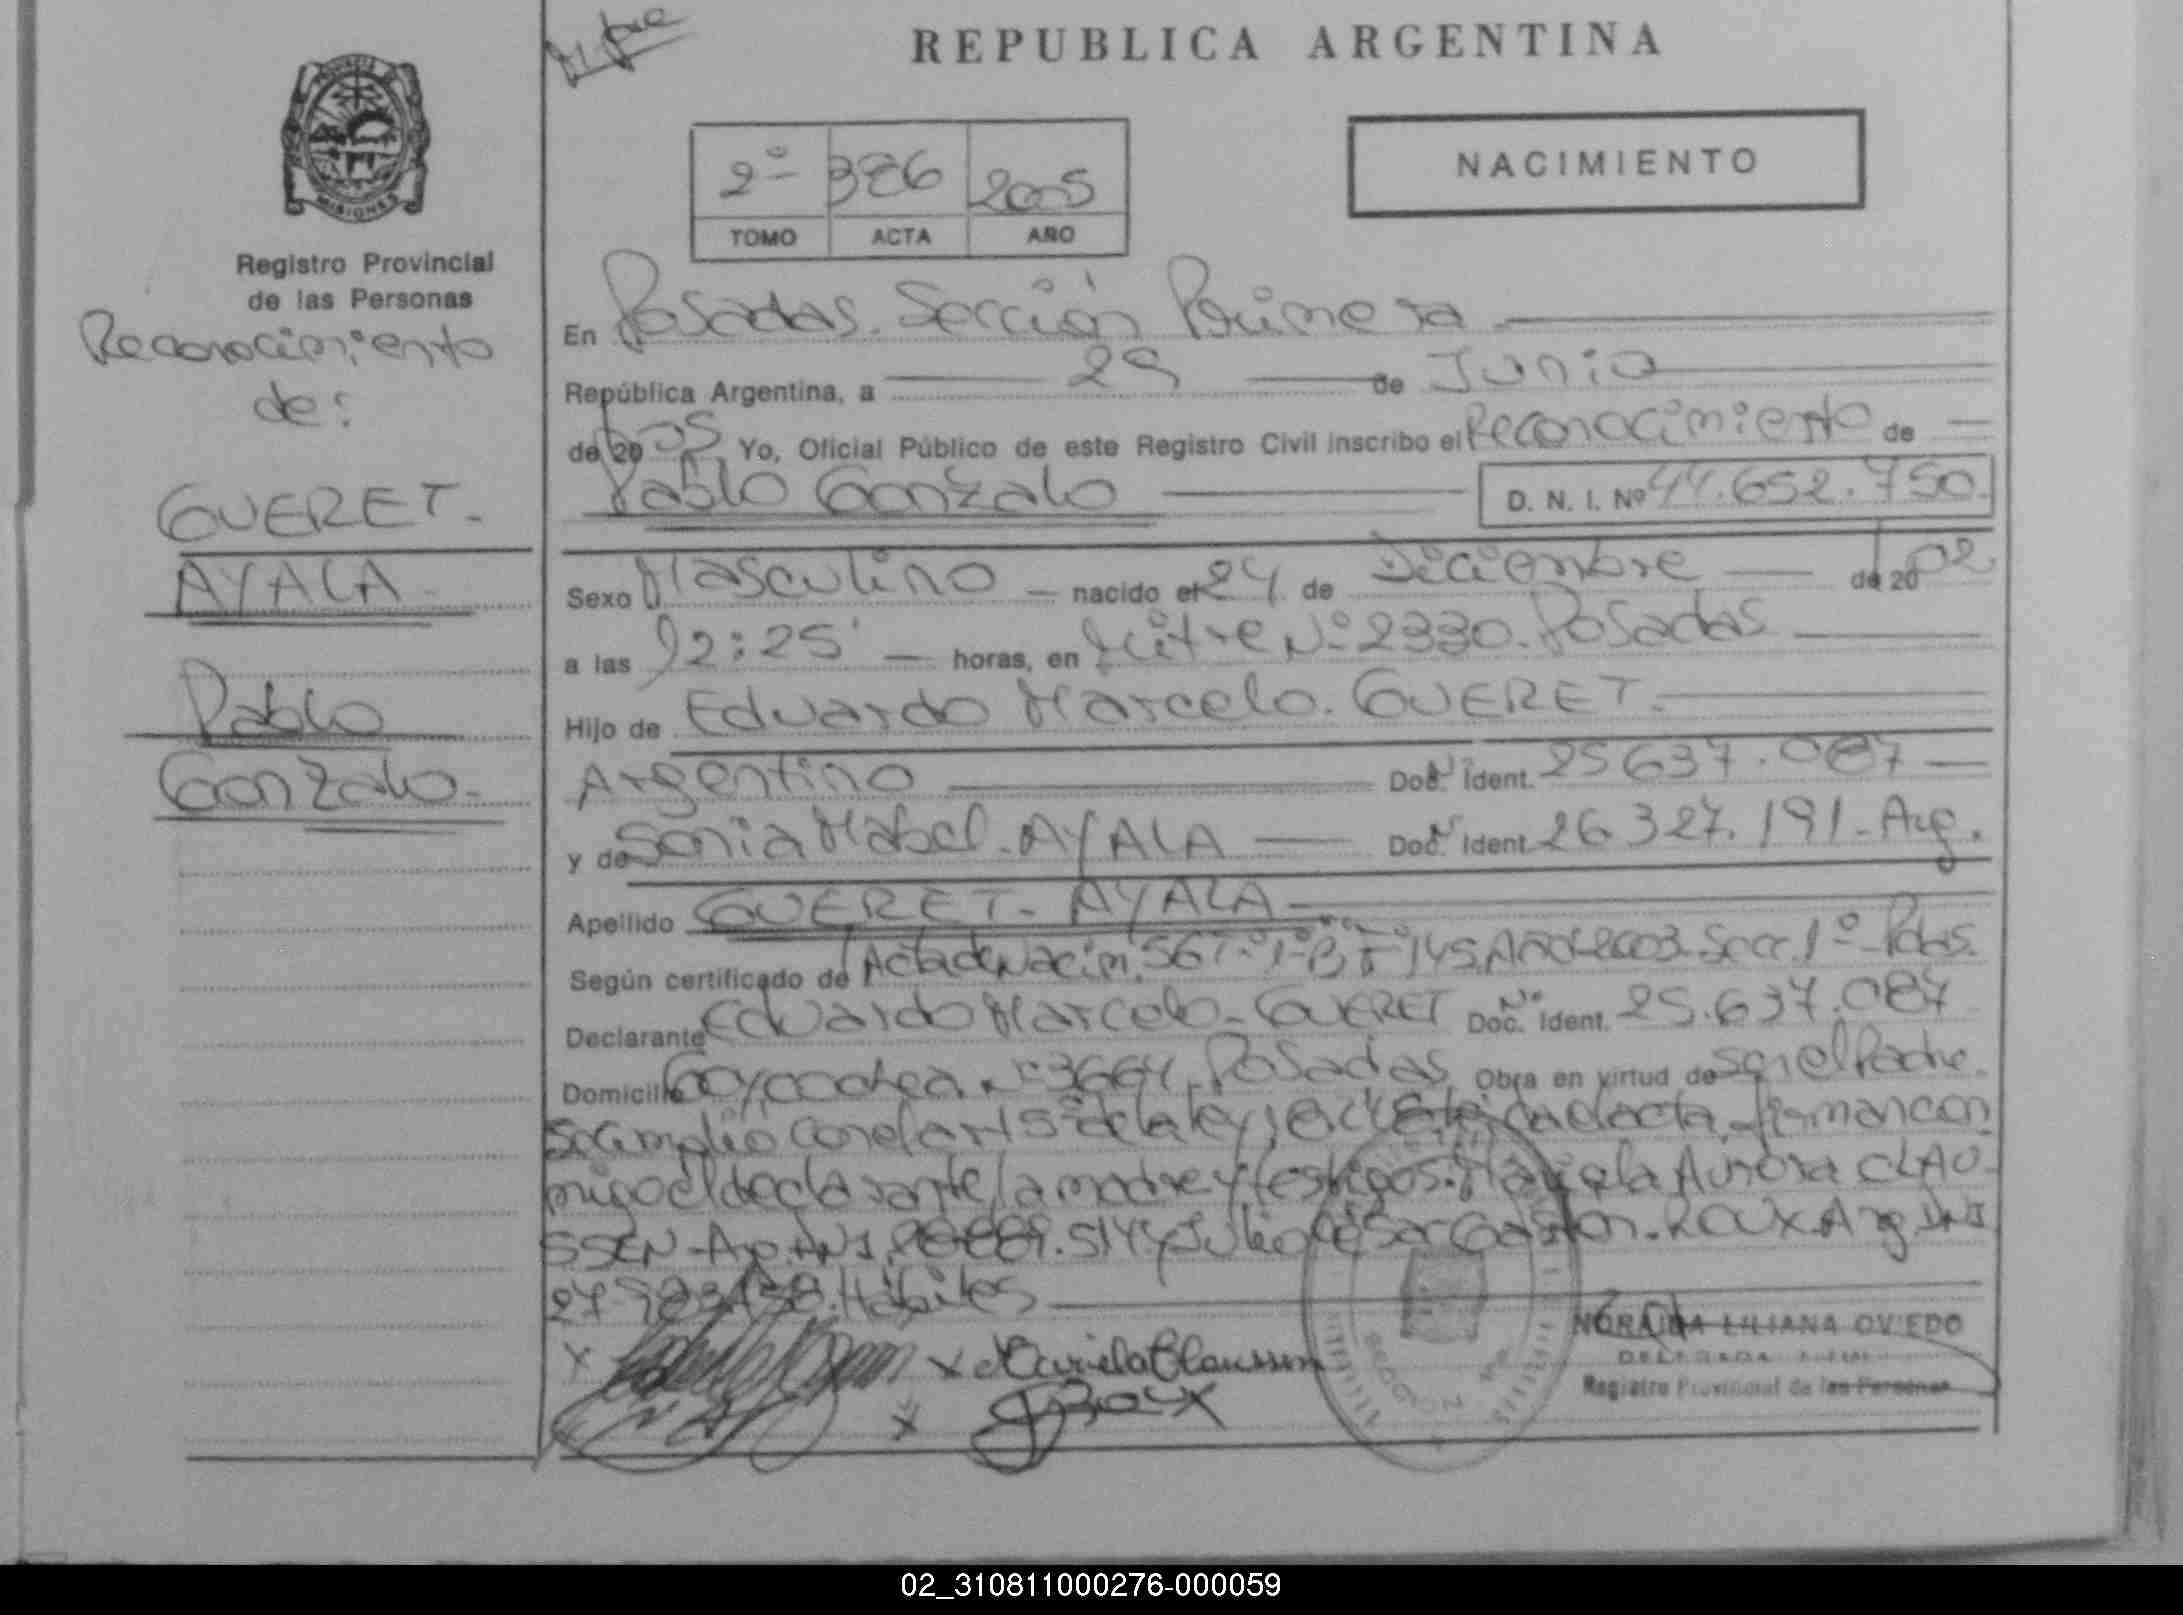 REPUBLICA ARGENTINA
MISIONES
Registro Provincial
de las Personas
Reconocimiento
de:
GUERET-
AYALA-
Pablo
Gonzalo-
2º 386 2005
TOMO ACTA AÑO
NACIMIENTO
En Posadas. Sección Primera
República Argentina, a 29 de Junio
de 2005 Yo, Oficial Público de este Registro Civil inscribo el Reconocimiento de
Pablo Gonzalo D. N. I. Nº 44.652.750.
Sexo Masculino nacido el 24 de Diciembre de 2002
a las 12:25' horas, en Mitre Nº 2330. Posadas
Hijo de Eduardo Marcelo. GUERET.
Argentino Doc. Nº Ident. 25637.087
y de Sonia Mabel. AYALA Doc. Nº Ident. 26.327.191-Arg.
Apellido GUERET- AYALA
Según certificado de Acta de Nacim. 567-Tº1-B-Fº145. Año-2003-Secc. 1º-Pdas.
Declarante Eduardo Marcelo-GUERET Doc. Nº Ident. 25.637.087
Domicilio Nº 3664, Posadas Obra en virtud de ser el Padre.
Se cumplió con el art 5º de la ley, leída el acta, firman con
migo el declarante, la madre y testigos: Mariela Aurora CLAU-
SSEN-Arg. DNI. .514 y Julio César Gastón-ROUX Arg DNI
Hábiles
x x Mariela Claussen
x Roux
NORAIDA LILIANA OVIEDO
DELEGADA
Registro Provincial de las Personas
02_310811000276-000059